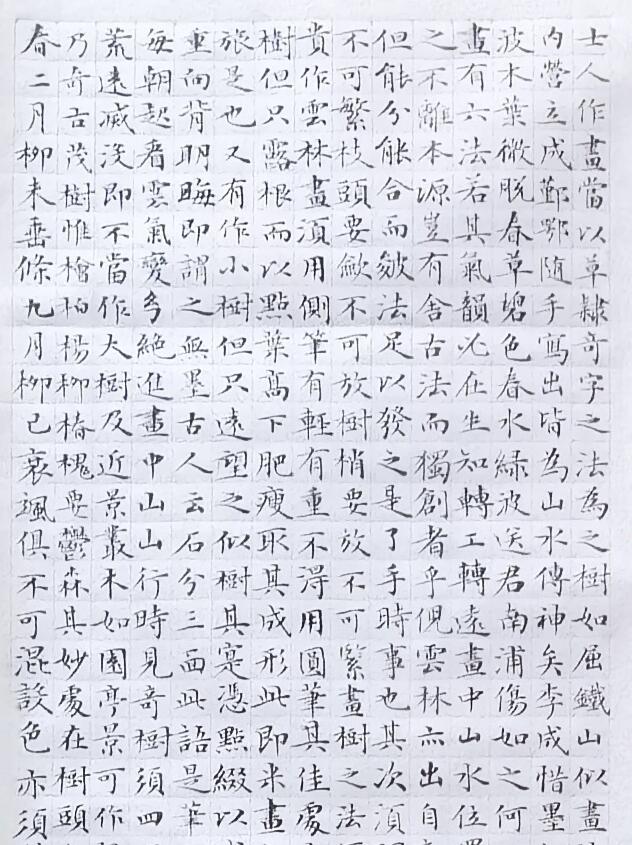 士人作畫當以草隸奇字之法為之樹如屈鐵山似畫
内營立成鄞鄂随手寫出皆為山水傳神矣李成惜墨
波木葉微脱春草碧色春水緑波送君南浦傷如之何
畫有六法若其氣韻必在生知轉工轉遠畫中山水位
之不離本源豈有舍古法而獨創者乎倪雲林亦出自
但能分能合而皴法足以發之是了手時事也其次須
不可繁枝頭要歛不可放樹梢要放不可緊畫樹之法
貴作雲林畫須用側筆有輕有重不得用圓筆其佳處
樹但只露根而以點葉高下肥瘦取其成形此即米畫
旅是也又有作小樹但只遠望之似樹其寔憑點綴以
重向背明晦即謂之無墨古人云石分三面此語是筆
每朝起看雲氣變多絶進畫中山山行時見奇樹須四
荒遠滅没即不當作大樹及近景叢木如園亭景可作
乃奇古茂樹惟檜柏楊柳椿槐要鬱森其妙處在樹頭
春二月柳未垂條九月柳已衰颯俱不可混設色亦須